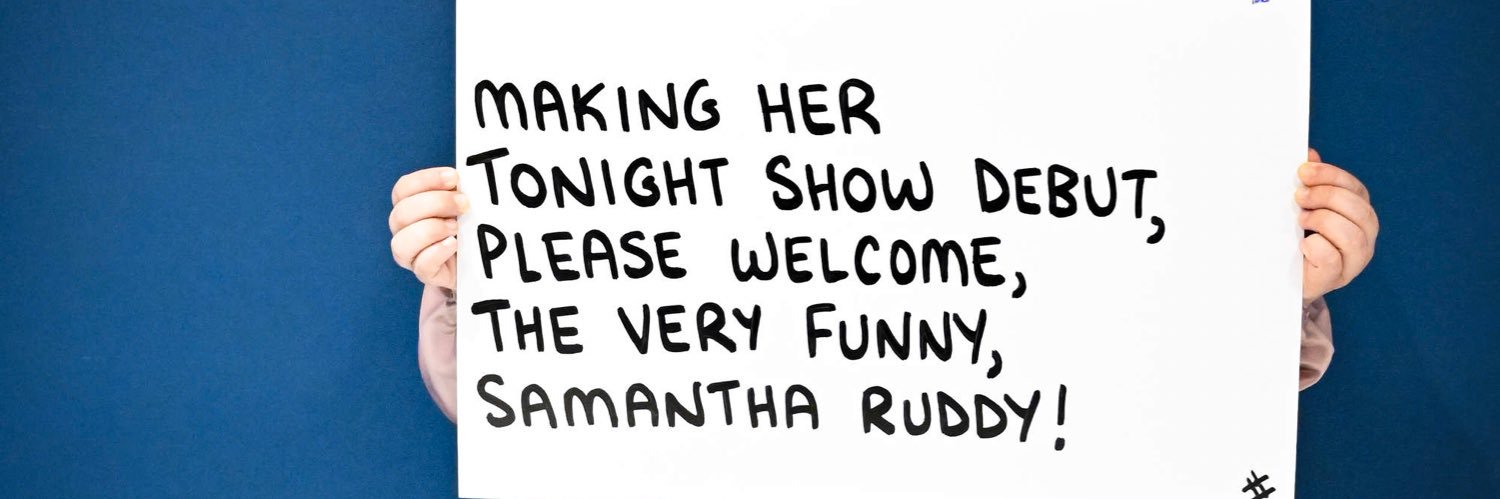 MAKING HER
TONIGHT SHOW DEBUT,
PLEASE WELCOME,
THE VERY FUNNY,
SAMANTHA RUDDY!
#